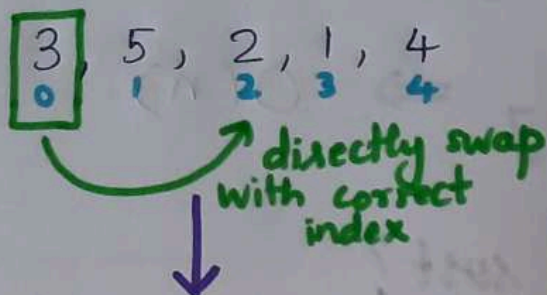 3, 5, 2, 1, 4
0 1 2 3 4
directly swap
with correct
index